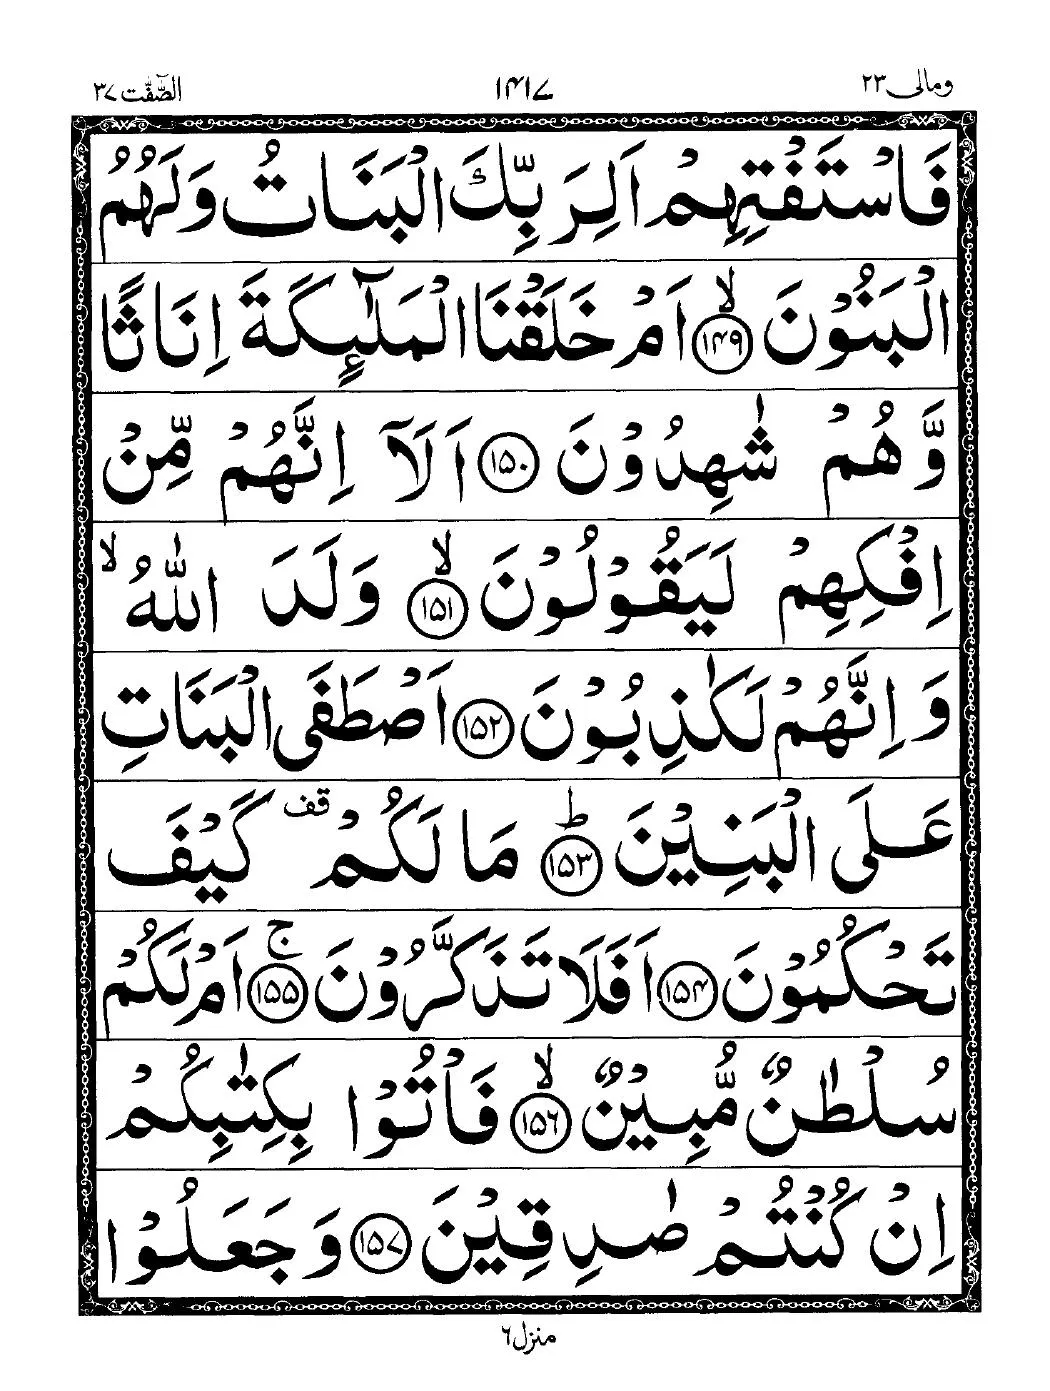 ومالی ۲۳
۱۴۱۷
الصّٰفّٰت ۳۷
فَاسْتَفْتِهِمْ اَلِرَبِّكَ الْبَنَاتُ وَلَهُمُ
الْبَنُوْنَ ۙ۱۴۹ اَمْ خَلَقْنَا الْمَلٰٓئِكَةَ اِنَاثًا
وَّهُمْ شٰهِدُوْنَ ۱۵۰ اَلَاۤ اِنَّهُمْ مِّنْ
اِفْكِهِمْ لَيَقُوْلُوْنَ ۙ۱۵۱ وَلَدَ اللّٰهُ ۙ
وَاِنَّهُمْ لَكٰذِبُوْنَ ۱۵۲ اَصْطَفَى الْبَنَاتِ
عَلَى الْبَنِيْنَ ؕ۱۵۳ مَا لَكُمْ قف كَيْفَ
تَحْكُمُوْنَ ۱۵۴ اَفَلَا تَذَكَّرُوْنَ ۚ۱۵۵ اَمْ لَكُمْ
سُلْطٰنٌ مُّبِيْنٌ ۙ۱۵۶ فَاْتُوْا بِكِتٰبِكُمْ
اِنْ كُنْتُمْ صٰدِقِيْنَ ۱۵۷ وَجَعَلُوْا
منزل ۶